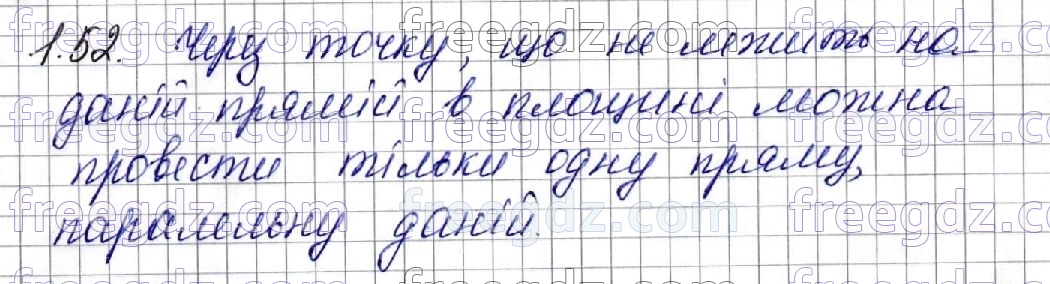 1.52. Через точку, що не лежить на
даній прямій в площині можна
провести тільки одну пряму,
паралельну даній.
freegdz.com